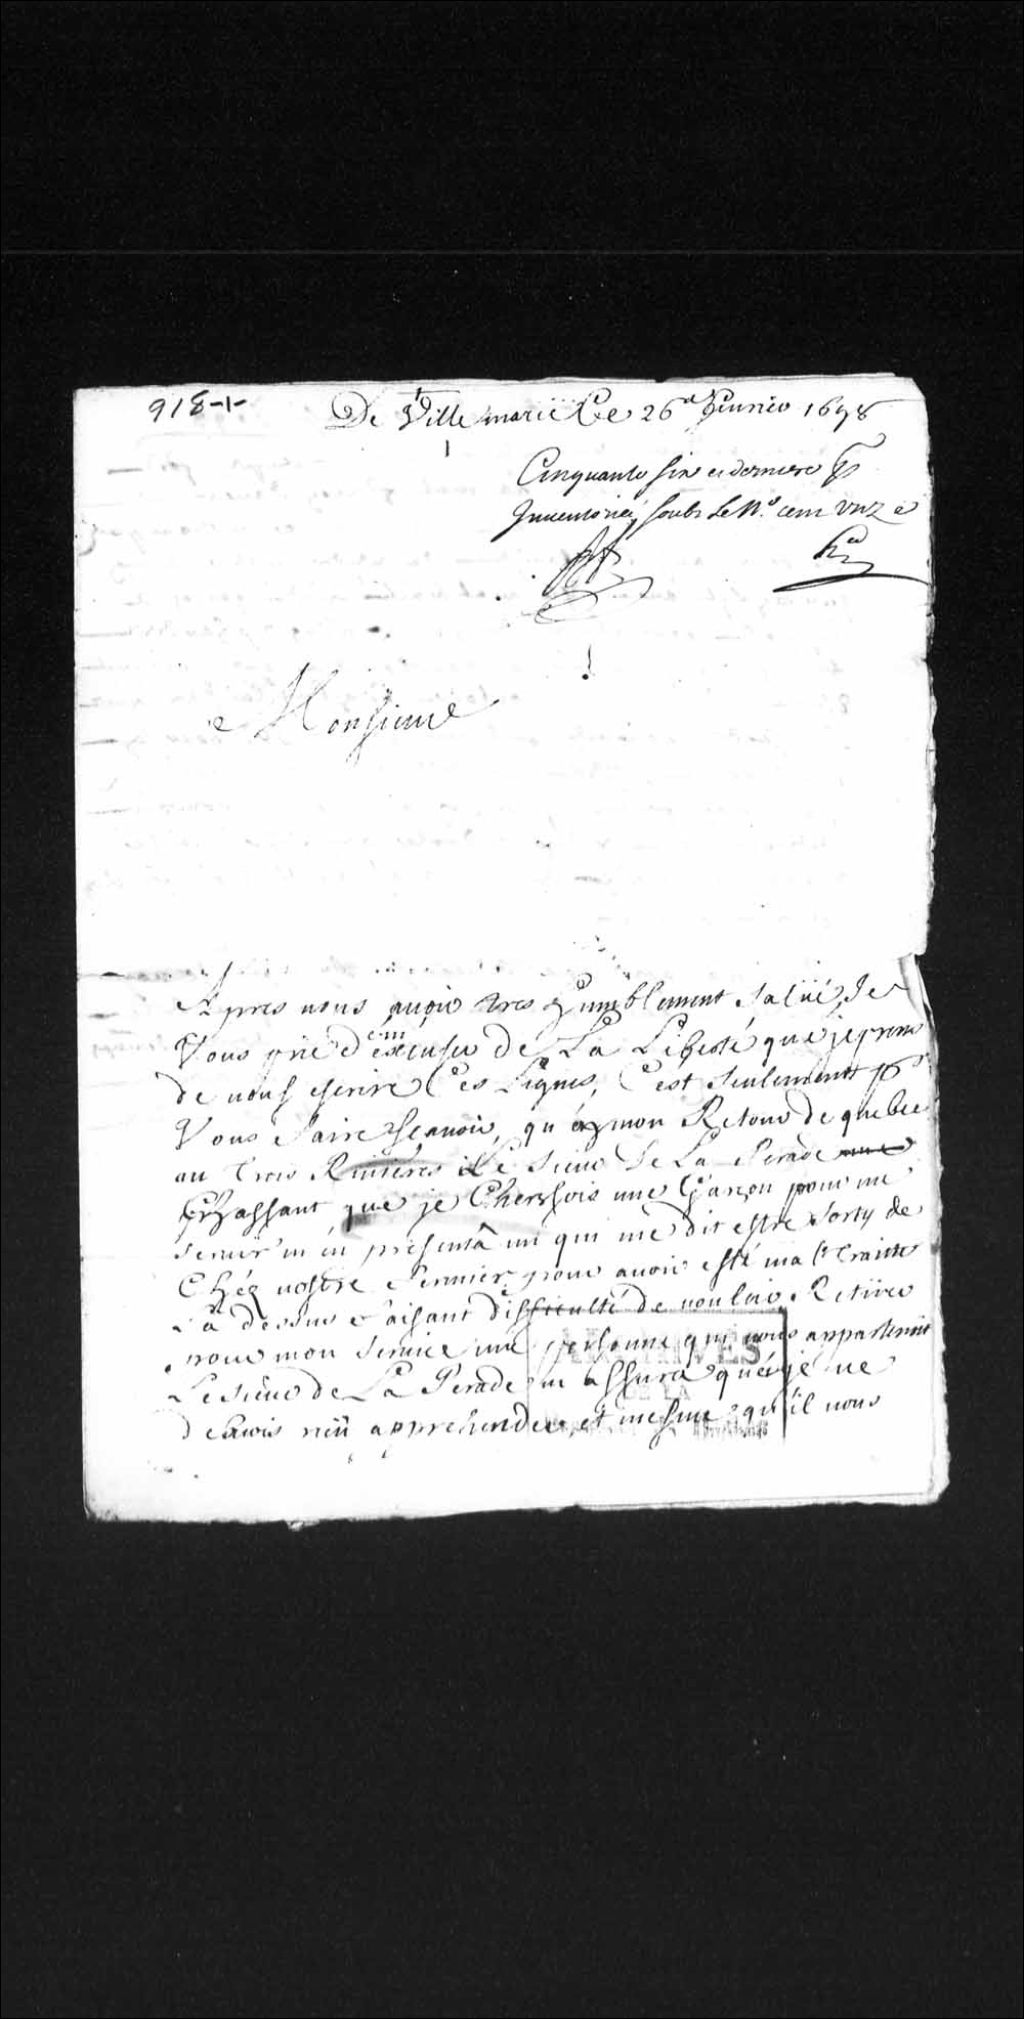 918-1-
De Ville marie Le 26e feurier 1698
Cinquante six et derniere
Inuentoriée soubz le No. cent vnze
Monsieur
Apres vous auoir tres humblement salüé, Je
Vous prie d'éxcuser de La Liberté que je prens
de vous escrire Ces Lignes, C'est seulement pr
Vous faire sçauoir, qu'a mon Retour de quebec
au trois Riuieres Le sieur De La Perade
sçachant que je Cherchois une Garçon pour me
seruir m'en presentâ un qui me dit estre sorty de
Chéz vostre fermier pour auoir esté mal traitté
La dessus faisant difficulté de vouloir Retirer
pour mon seruice une personne qui vous appartenoit
Le sieur de La Perade m'assura que je ne
deuois rien apprehender, et mesme qu'il vous
ARCHIVES
DE LA